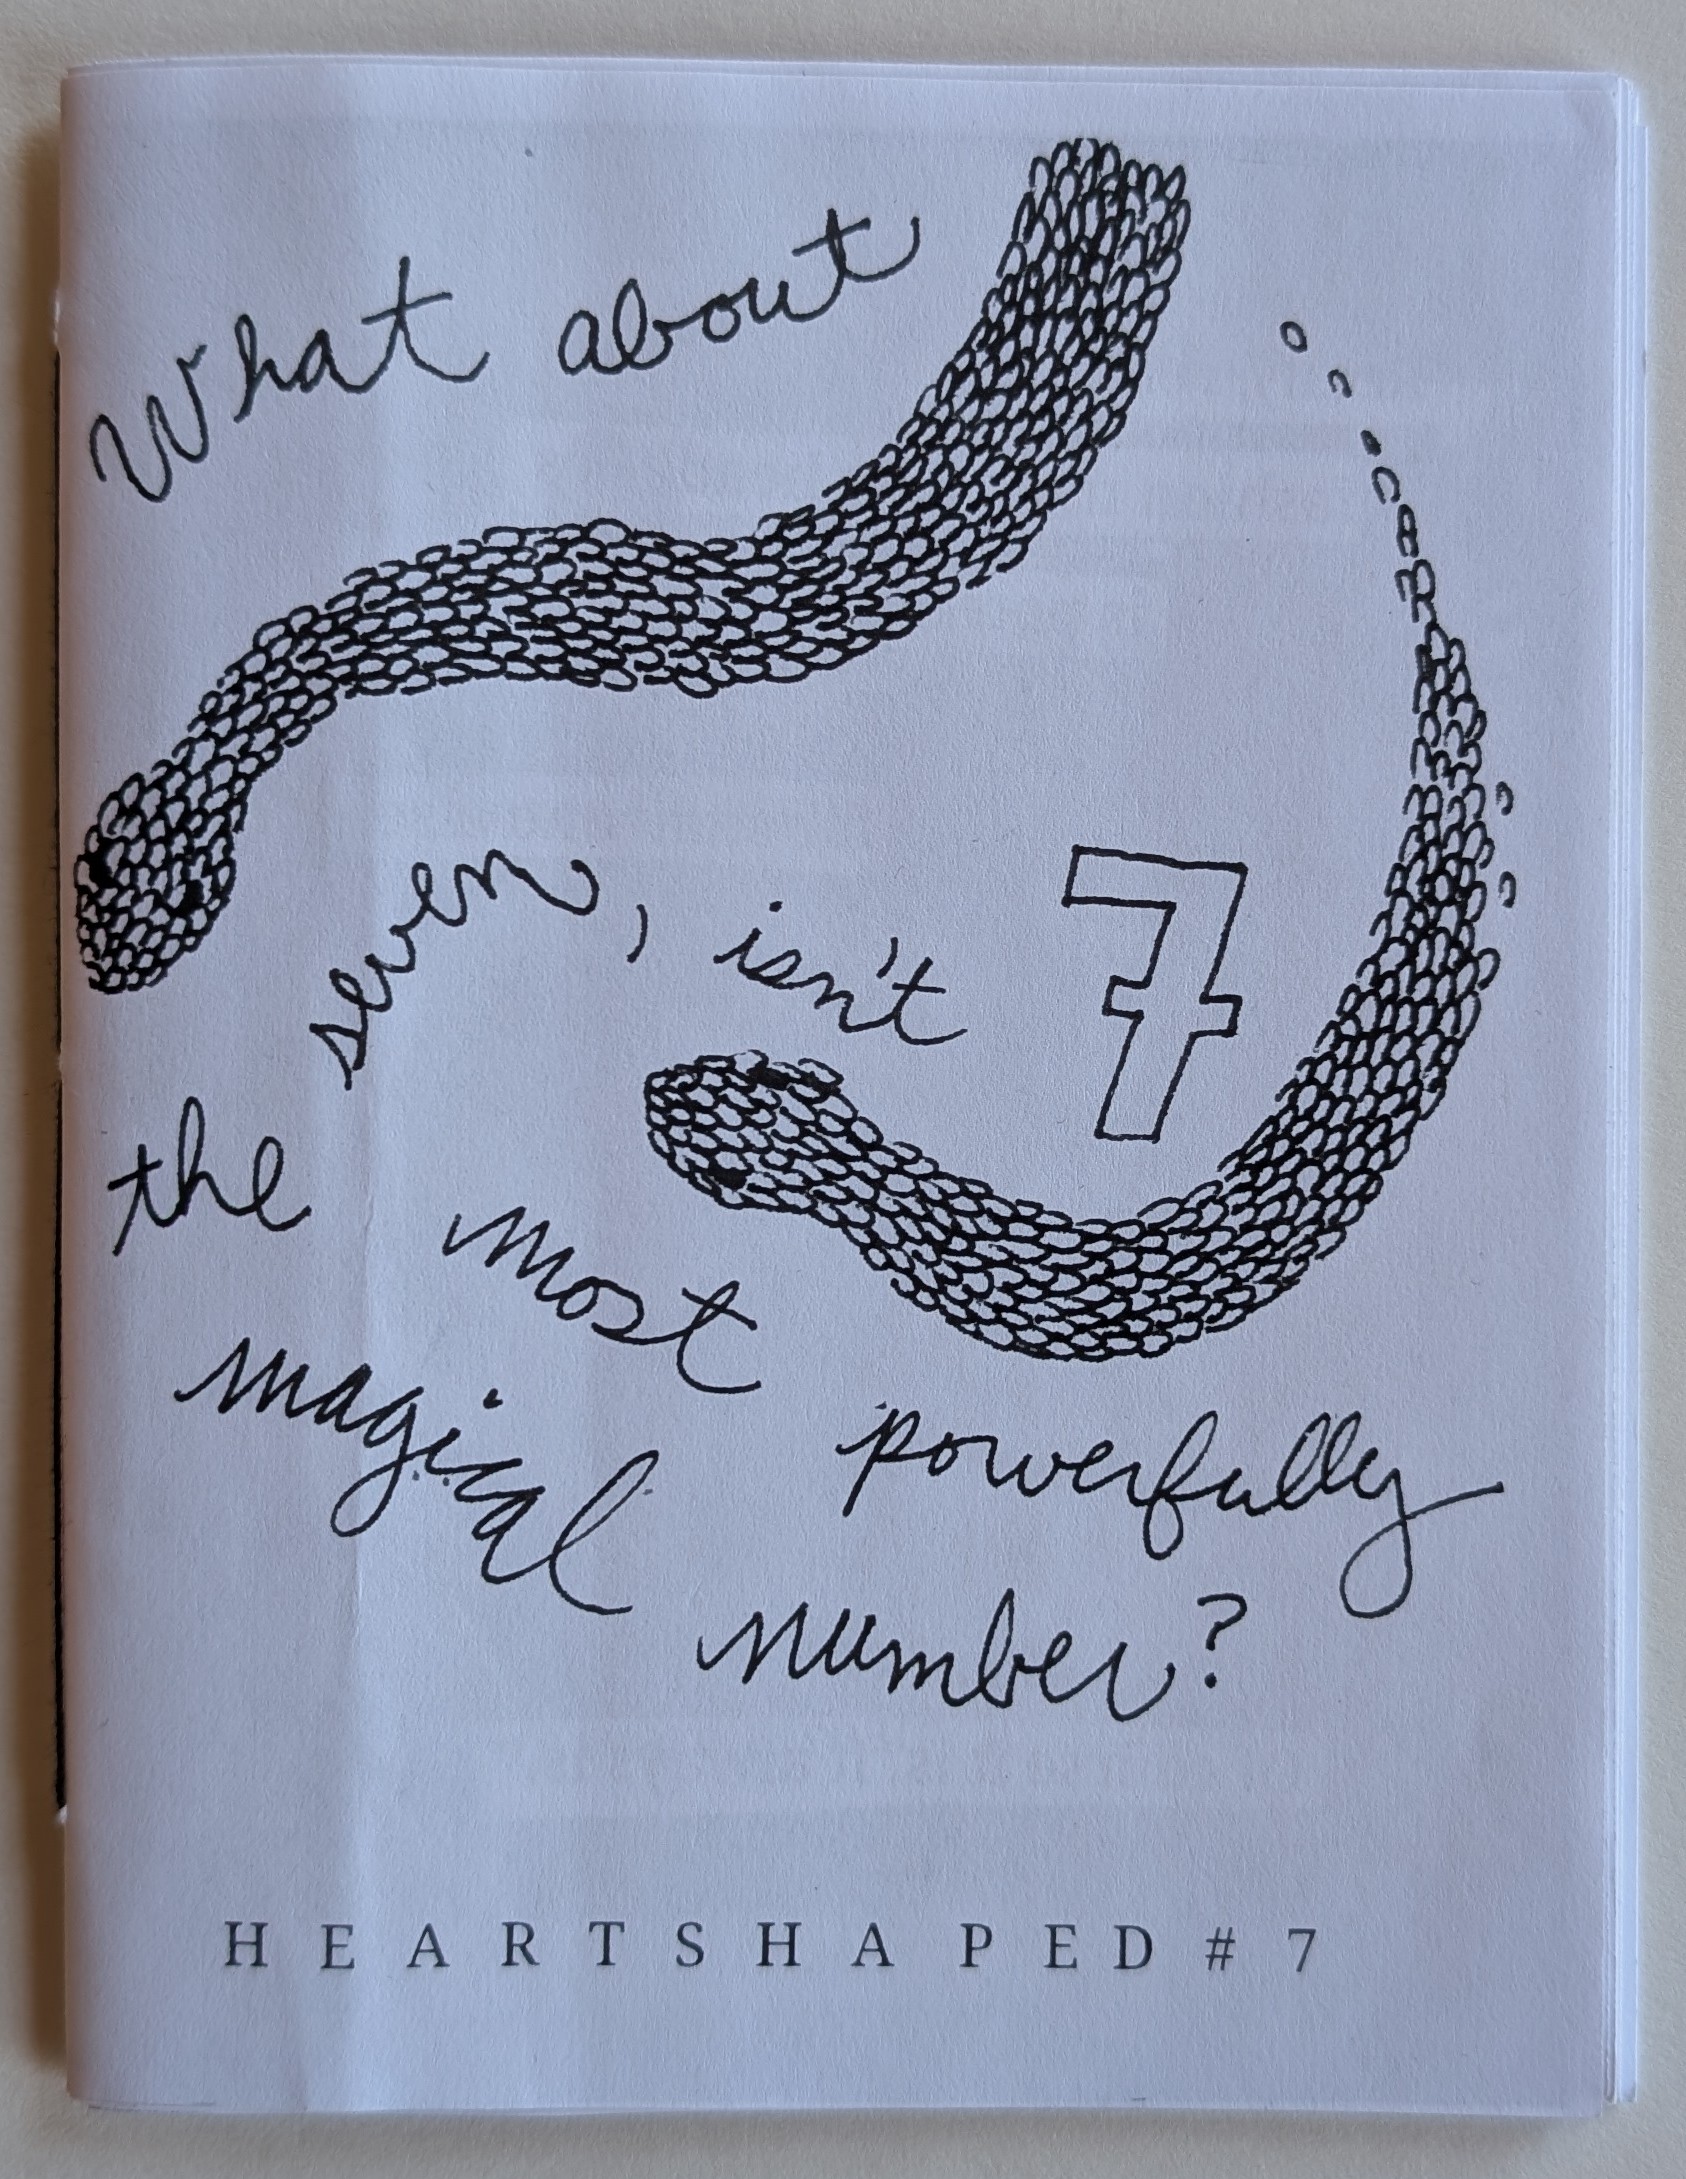 What about
seven, isn't
7
the most powerfully
magical number?
HEARTSHAPED#7